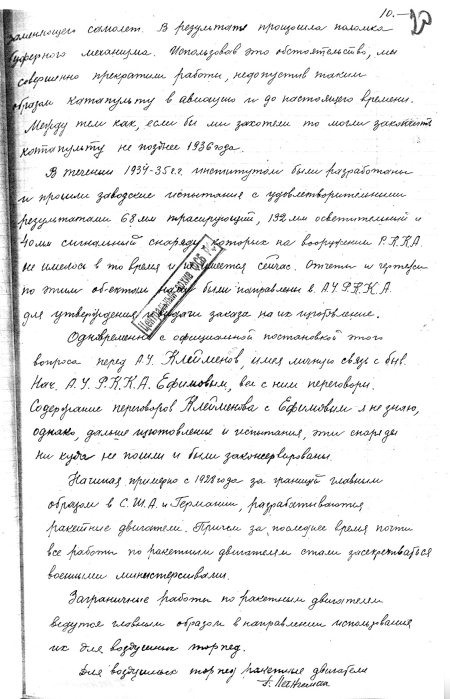 10.
заменяющего самолет. В результате произошла поломка
буферного механизма. Использовав это обстоятельство, мы
совершенно прекратили работы, недопустив таким
образом катапульту в авиацию и до настоящего времени.
Между тем как, если бы мы захотели то могли закончить
катапульту не позднее 1936 года.
В течении 1934-35 г.г. институтом были разработаны
и прошли заводские испытания с удовлетворительными
результатами 68 мм трасирующий, 132 мм осветительный и
40 мм сигнальный снаряды которых на вооружении Р.К.К.А.
не имелось в то время и не имеется сейчас. Отчеты и чертежи
по этим объектам нами были направлены в А.У.Р.К.К.А.
для утверждения и выдачи заказа на их изготовление.
Центральный архив ФСБ
Одновременно с официальной постановкой этого
вопроса перед А.У. Клейменов, имея личную связь с быв.
Нач. А.У.Р.К.К.А. Ефимовым, вел с ним переговоры.
Содержание переговоров Клейменова с Ефимовым я не знаю,
однако, дальше изготовление и испытания, эти снаряды
ни куда не пошли и были законсервированы.
Начиная примерно с 1928 года за границей главным
образом в С.Ш.А. и Германии, разрабатываются
ракетные двигатели. Причем за последнее время почти
все работы по ракетным двигателям стали засекречиваться
военными министерствами.
Заграничные работы по ракетным двигателям
ведутся главным образом в направлении использования
их для воздушных торпед.
Для воздушных торпед ракетные двигатели
Г. Лангемак